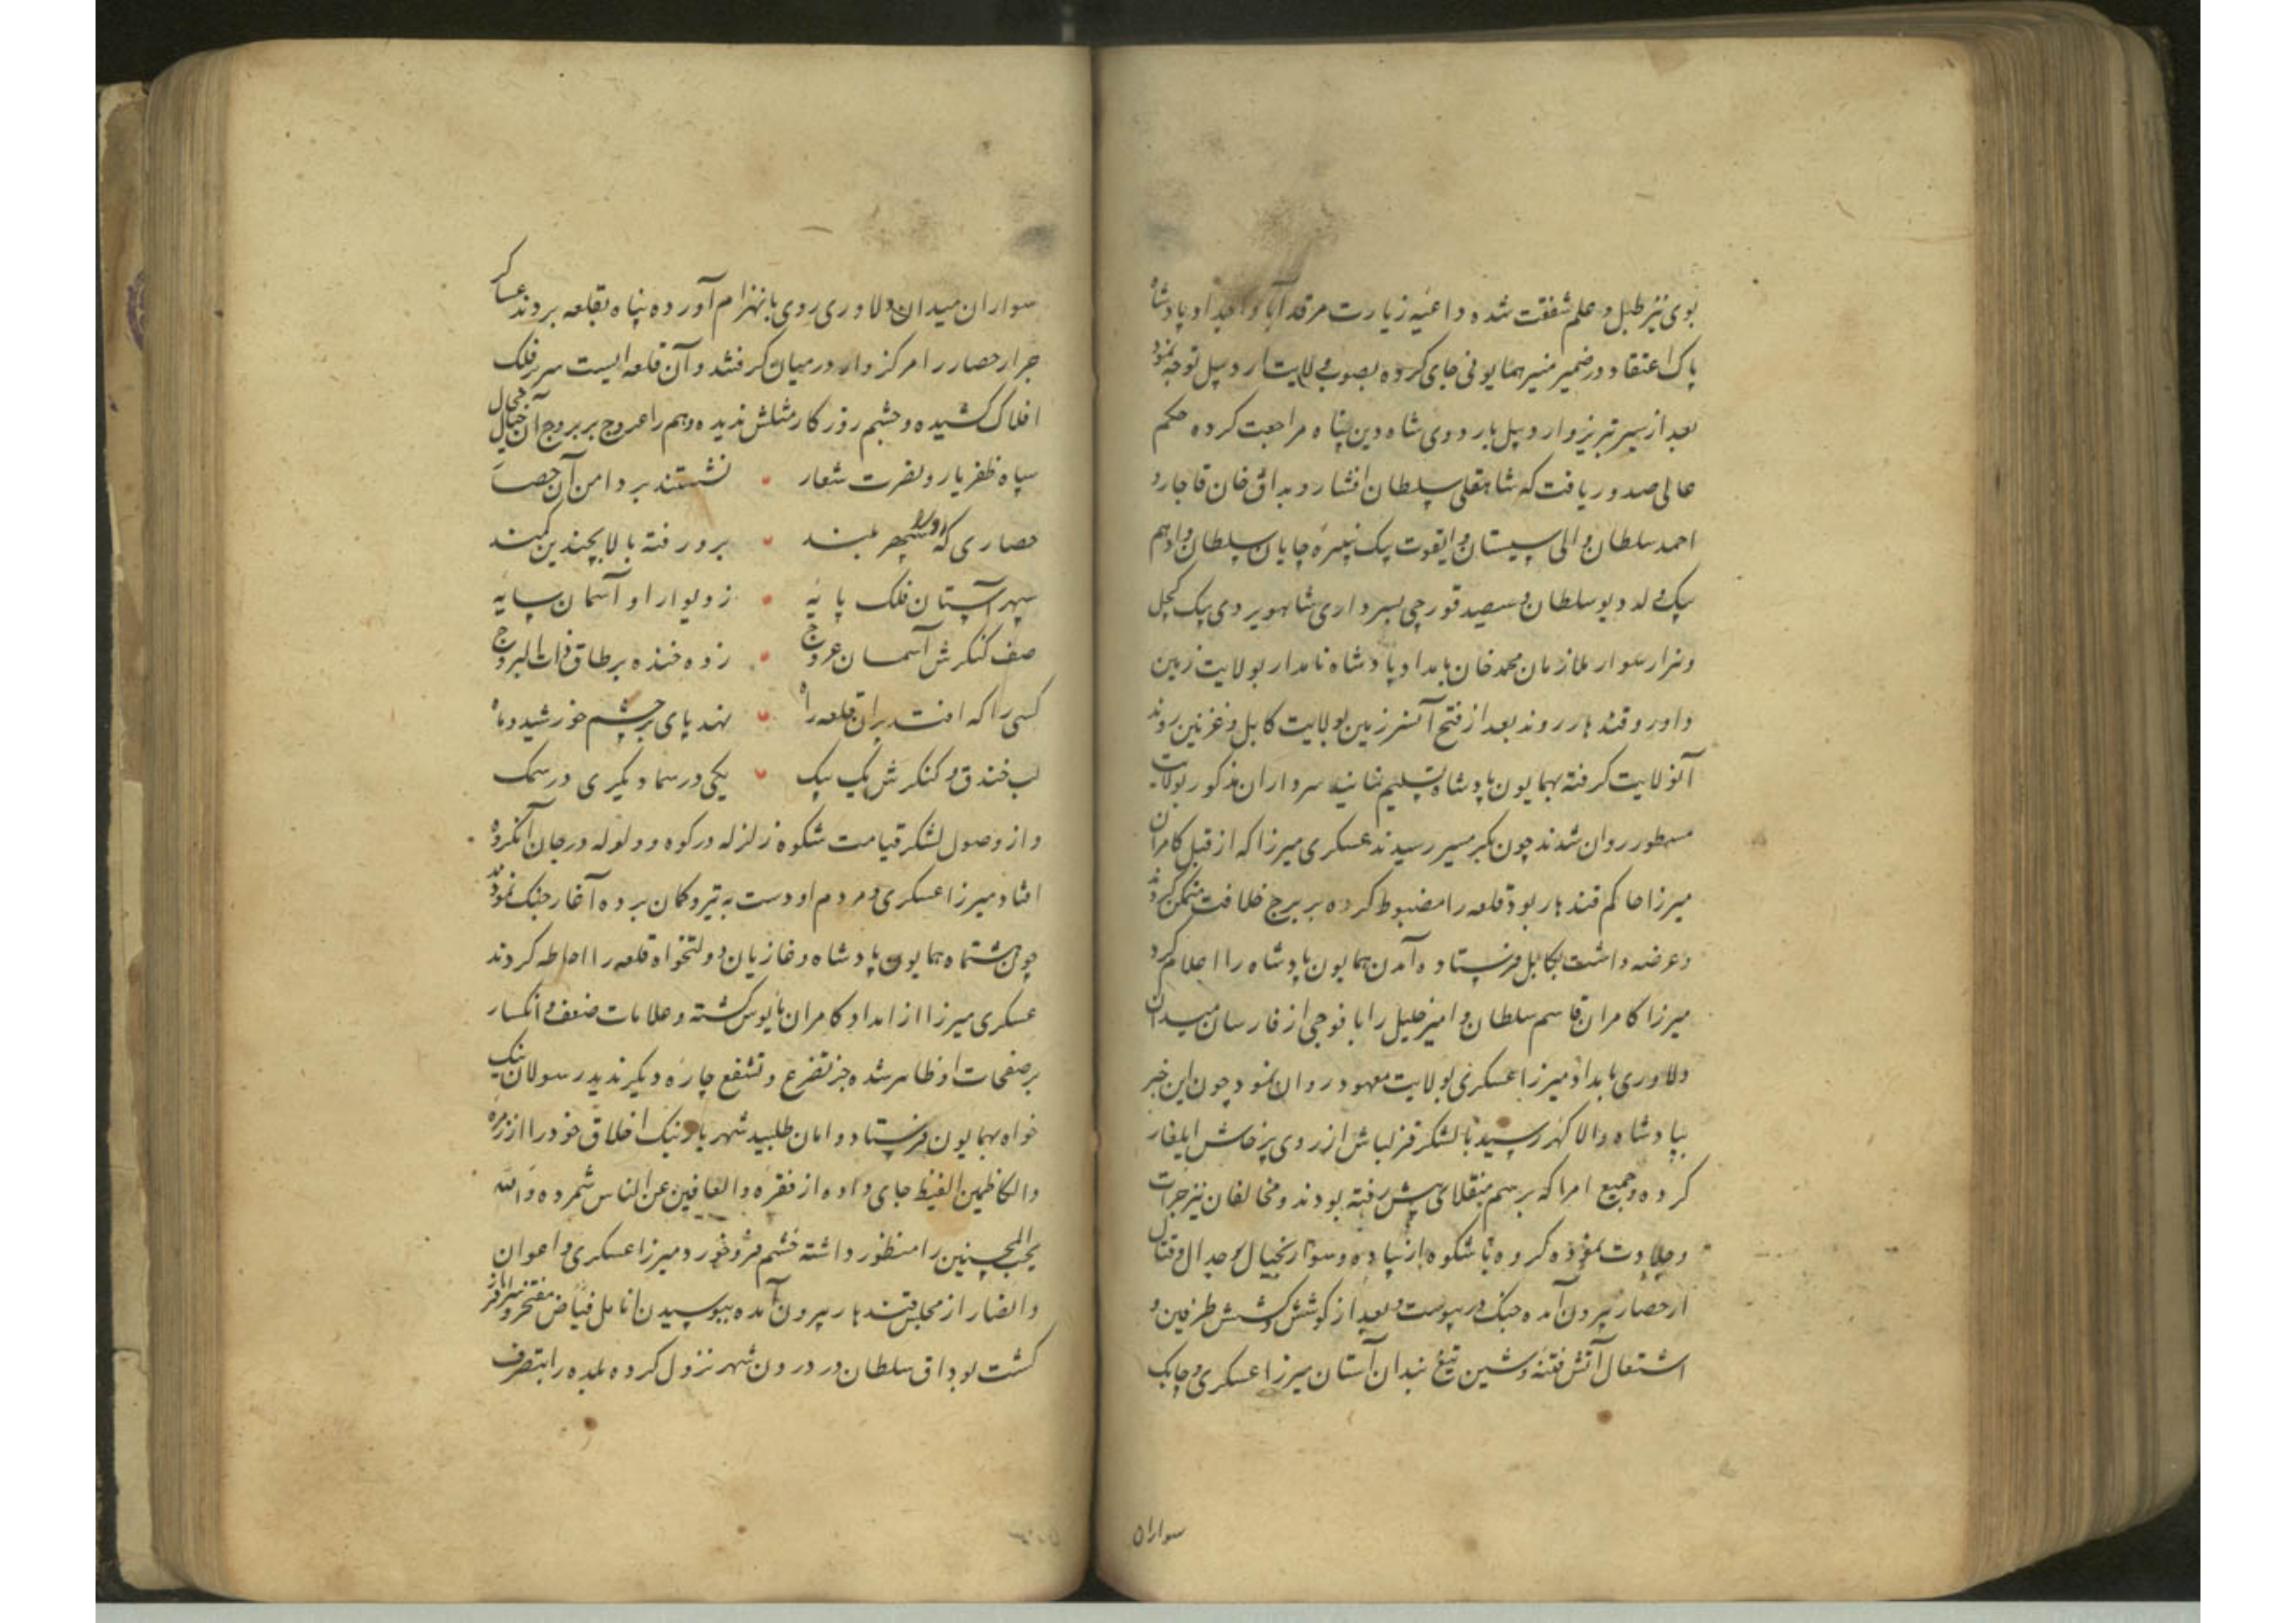 بوی نیز طبل و علم شفقت شده داعیه زیارت مرقد آبا و اجداد پادشاه
پاک اعتقاد در ضمیر منیر همایونی جای کرده بصوب ولایت اردبیل توجه نمود
بعد از سیر تبریز و اردبیل باردوی شاه دین پناه مراجعت کرده حکم
عالی صدور یافت که شاهقلی سلطان افشار و بداق خان قاجار و
احمد سلطان والی سیستان و ایقوت بیک نبیره چایان سلطان و ادهم
بیک ولد دیو سلطان و سیصد قورچی بسرداری شاهویردی بیک کچل
و هزار سوار ملازمان محمد خان بامداد پادشاه نامدار بولایت زمین
داور و قندهار روند بعد از فتح آنسرزمین بولایت کابل و غزنین روند
آنولایت گرفته بهمایون پادشاه تسلیم نمایند سرداران مذکور بولایت
مسطور روان شدند چون بگرمسیر رسیدند عسکری میرزا که از قبل کامران
میرزا حاکم قندهار بود قلعه را مضبوط کرده بر برج خلافت متمکن گردید
و عرضه داشت بکابل فرستاده آمدن همایون پادشاه را اعلام کرد
میرزا کامران قاسم سلطان و امیر خلیل را با فوجی از فارسان میدان
دلاوری بامداد میرزا عسکری بولایت معهود روان نمود چون این خبر
بپادشاه والا گهر رسید با لشکر قزلباش از روی پرخاش ایلغار
کرده و جمیع امرا که برسم منقلای پیش رفته بودند و مخالفان نیز جرات
و جلادت نموده گروه با شکوه از پیاده و سوار بخیال جدال و قتال
از حصار بیرون آمده جنگ در پیوست و بعد از کوشش و کشش طرفین و
اشتعال آتش فتنه و شین تیغ بندان آستان میرزا عسکری و چابک
سواران
سواران میدان دلاوری روی بانهزام آورده پناه بقلعه بردند عساکر
جرار حصار را مرکزوار در میان گرفتند و آن قلعه ایست سر بر فلک
افلاک کشیده و چشم روزگار مثلش ندیده و هم را عروج بر بروج آن خیال محال
سپاه ظفر یار و نصرت شعار نشستند بر دامن آن حصار
حصاری که سپهر بلند برو رفته بالا بچندین کمند
سپهر آستان فلک پایه ز دیوار او آسمان سایه
صف کنگرش آسمان عروج زده خنده بر طاق ذات البروج
کسی را که افتد بران قلعه راه نهد پای بر چشم خورشید و ماه
لب خندق و کنگرش یک بیک یکی در سما و دیگری در سمک
و از وصول لشکر قیامت شکوه زلزله در کوه و ولوله در جان آن گروه
افتاد میرزا عسکری و مردم او دست به تیر و کمان برده آغاز جنگ نمودند
چون هشتماه همایون پادشاه و غازیان دولتخواه قلعه را احاطه کردند
عسکری میرزا از امداد کامران مایوس گشته و علامات ضعف و انکسار
بر صفحات او ظاهر شده جز تضرع و تشفع چاره دیگر ندید رسولان نیک
خواه بهمایون فرستاد و امان طلبید شهریار نیک اخلاق خود را از زمره
والکاظمین الغیظ جای داده از فقره والعافین عن الناس شمرده والله
یحب المحسنین را منظور داشته خشم فرو خورد و میرزا عسکری و اعوان
و انصار از مجلس قندهار بیرون آمده ببوسیدن انامل فیاض مفتخر و سرافراز
گشت بوداق سلطان در درون شهر نزول کرده بلده را بتصرف